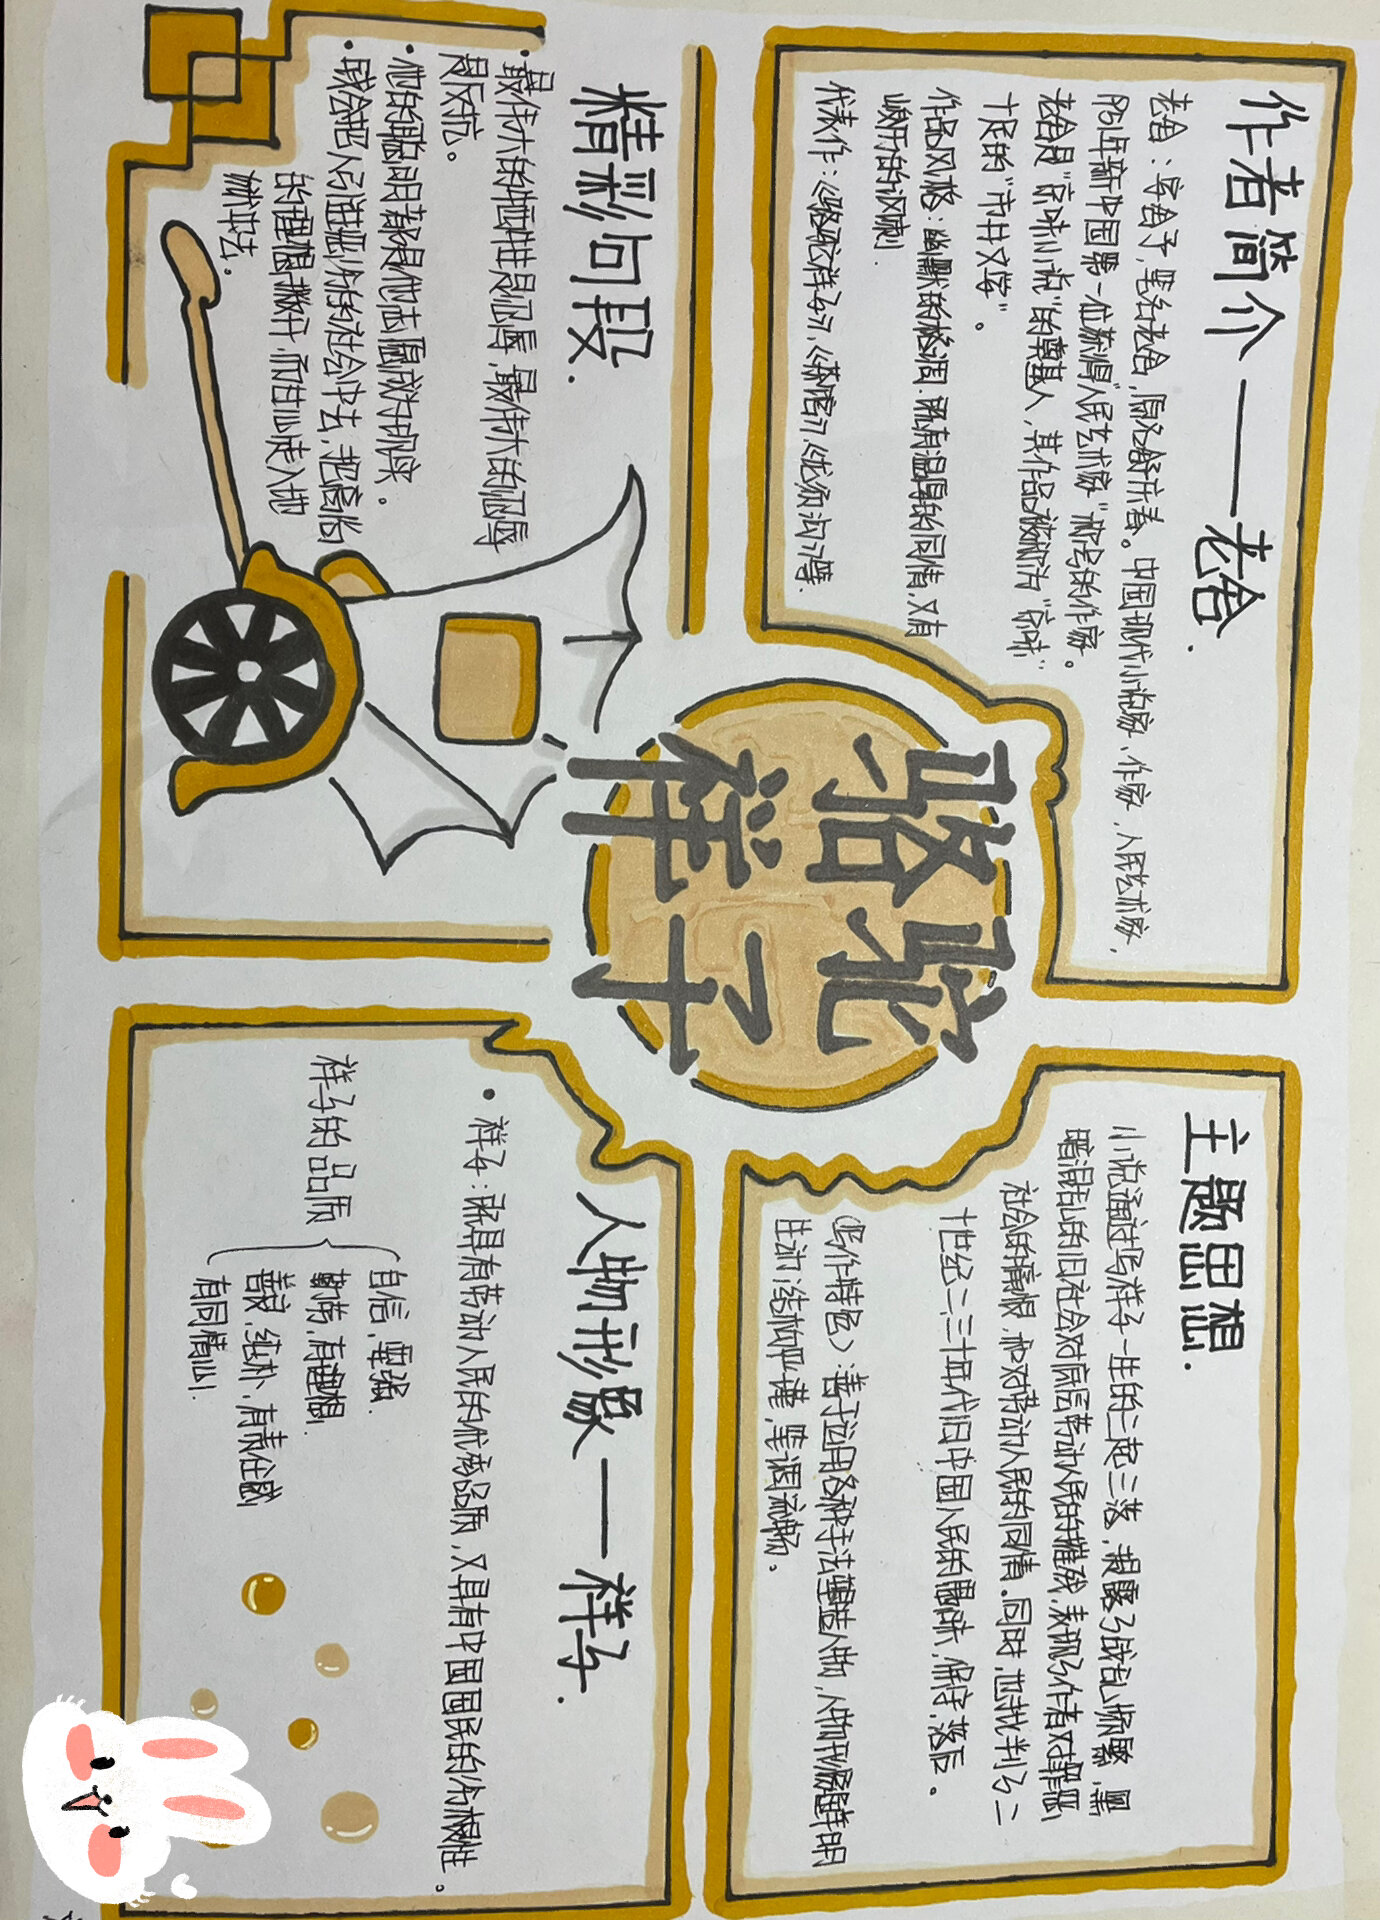 骆驼
祥子
作者简介——老舍.
老舍：字舍予，笔名老舍，原名舒庆春。中国现代小说家、作家，人民艺术家，
1951年新中国第一位获得“人民艺术家”称号的作家。
老舍是“京味小说”的奠基人，其作品被称为“京味”
十足的“市井文学”。
作品风格：幽默的格调.既有温厚的同情,又有
峻厉的讽刺.
代表作：《骆驼祥子》,《茶馆》,《龙须沟》等.
主题思想.
小说通过写祥子一生的三起三落，揭露了战乱频繁,黑
暗混乱的旧社会对底层劳动人民的摧残，表现了作者对罪恶
社会的痛恨 和对劳动人民的同情.同时,也批判了二
十世纪二、三十年代旧中国人民的愚昧,保守,落后。
(写作特色)：善于运用各种手法塑造人物，人物形象鲜明
生动;结构严谨,笔调流畅。
精彩句段.
·最伟大的牺牲是忍辱，最伟大的忍辱
是反抗。
·他的聪明都是他去愿成为印奖。
·钱会把人引进恶劣的社会中去，把高尚
的理想撇开,而甘心走入地
狱中去。
人物形象——祥子.
·祥子：既具有劳动人民的优秀品质，又具有中国国民的劣根性。
祥子的品质
自信,要强.
勤劳,有理想.
善良,纯朴、有责任感
有同情心.